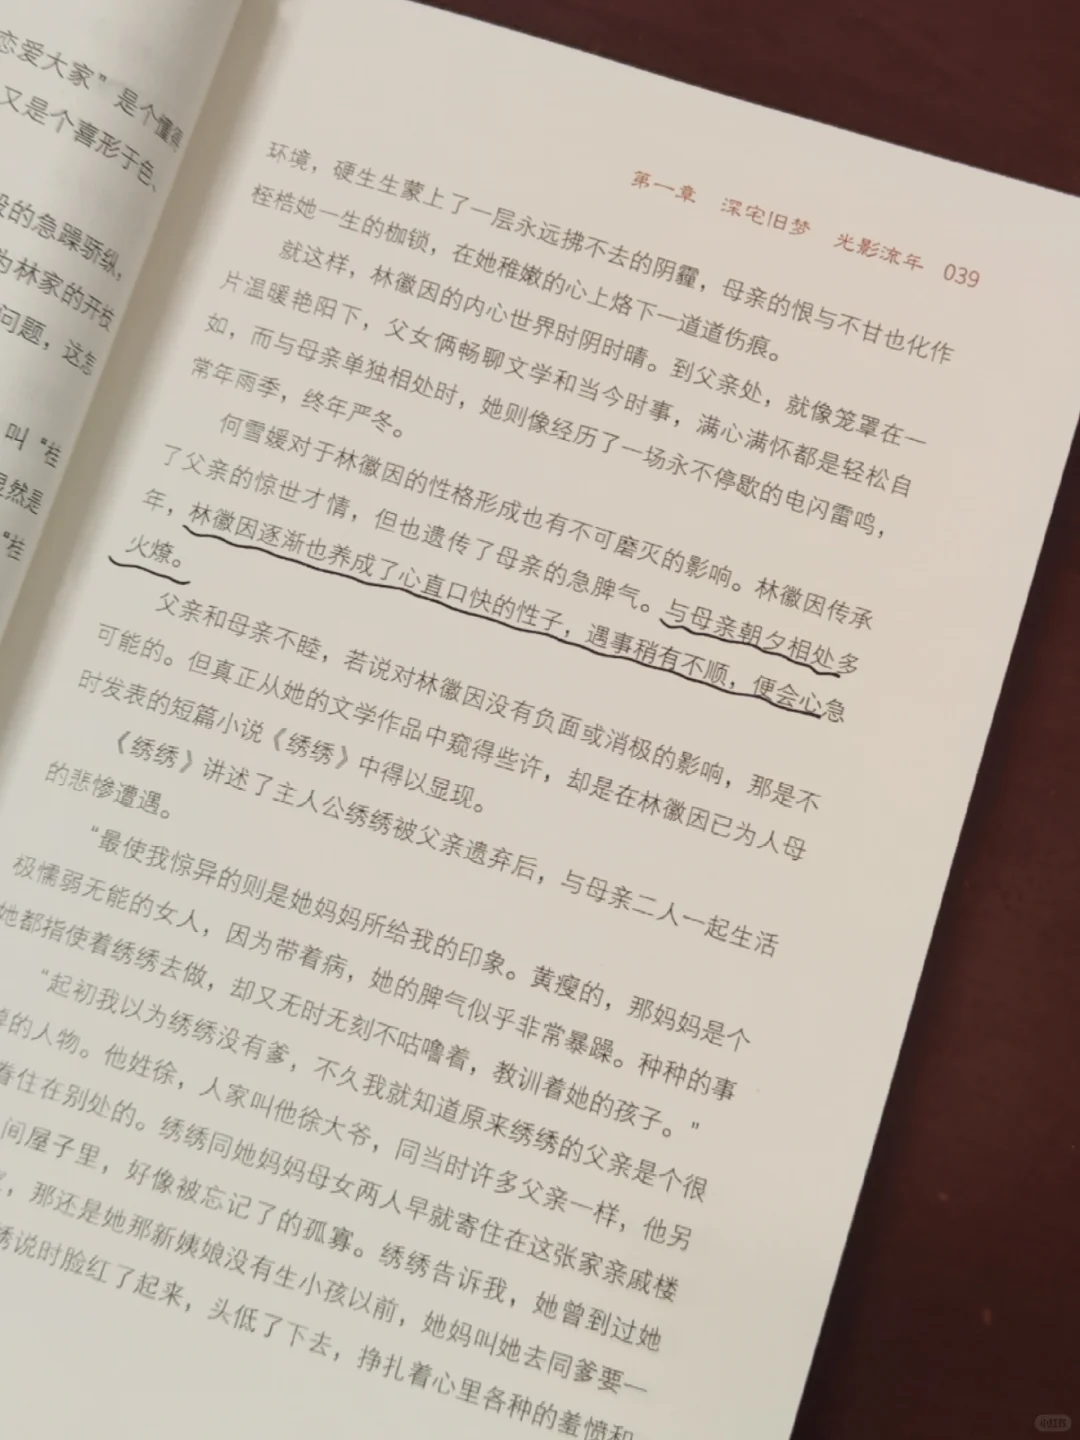 恋爱大家”是个懂得
又是个喜形于色、
的急躁骄纵，
为林家的开枝
问题，这怎
叫“桂
显然是
“桂
第一章 深宅旧梦 光影流年 039
环境，硬生生蒙上了一层永远拂不去的阴霾，母亲的恨与不甘也化作
桎梏她一生的枷锁，在她稚嫩的心上烙下一道道伤痕。
就这样，林徽因的内心世界时阴时晴。到父亲处，就像笼罩在一
片温暖艳阳下，父女俩畅聊文学和当今时事，满心满怀都是轻松自
如，而与母亲单独相处时，她则像经历了一场永不停歇的电闪雷鸣，
常年雨季，终年严冬。
何雪媛对于林徽因的性格形成也有不可磨灭的影响。林徽因传承
了父亲的惊世才情，但也遗传了母亲的急脾气。与母亲朝夕相处多
年，林徽因逐渐也养成了心直口快的性子，遇事稍有不顺，便会心急
火燎。
父亲和母亲不睦，若说对林徽因没有负面或消极的影响，那是不
可能的。但真正从她的文学作品中窥得些许，却是在林徽因已为人母
时发表的短篇小说《绣绣》中得以显现。
《绣绣》讲述了主人公绣绣被父亲遗弃后，与母亲二人一起生活
的悲惨遭遇。
“最使我惊异的则是她妈妈所给我的印象。黄瘦的，那妈妈是个
极懦弱无能的女人，因为带着病，她的脾气似乎非常暴躁。种种的事
她都指使着绣绣去做，却又无时无刻不咕噜着，教训着她的孩子。”
“起初我以为绣绣没有爹，不久我就知道原来绣绣的父亲是个很
的人物。他姓徐，人家叫他徐大爷，同当时许多父亲一样，他另
眷住在别处的。绣绣同她妈妈母女两人早就寄住在这张家亲戚楼
间屋子里，好像被忘记了的孤寡。绣绣告诉我，她曾到过她
，那还是她那新姨娘没有生小孩以前，她妈叫她去同爹要一
绣说时脸红了起来，头低了下去，挣扎着心里各种的羞愤和